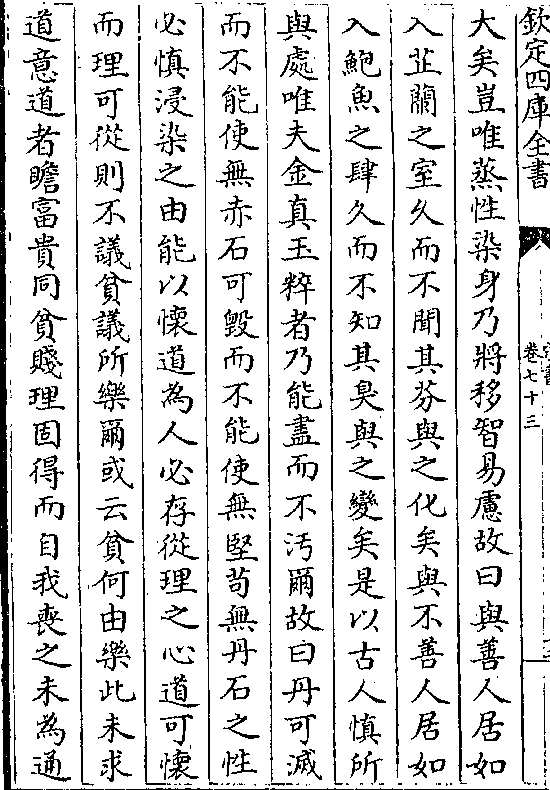 欽定四庫全書
宋書
卷七十三
大矣豈唯蒸性染身乃將移智易慮故曰與善人居如
入芷蘭之室久而不聞其芬與之化矣與不善人居如
入鮑魚之肆久而不知其臭與之變矣是以古人慎所
與處唯夫金真玉粹者乃能盡而不汚爾故曰丹可滅
而不能使無赤石可毀而不能使無堅苟無丹石之性
必慎浸染之由能以懷道為人必存從理之心道可懷
而理可從則不議貧議所樂爾或云貧何由樂此未求
道意道者瞻富貴同貧賤理固得而自我喪之未為通